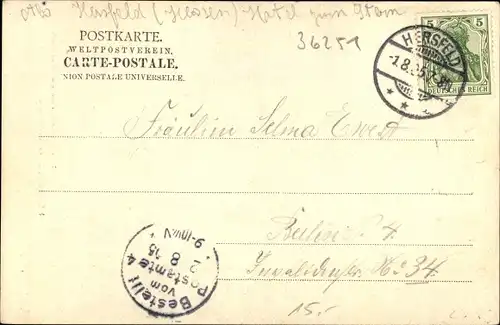 Hersfeld (Hessen) Hotel zum Stern
36251
POSTKARTE.
WELTPOSTVEREIN.
CARTE-POSTALE.
NION POSTALE UNIVERSELLE.
5 5
DEUTSCHES REICH
HERSFELD
-1.8.05.7-8N
Fräulein Selma Ewest
Berlin N. 4
Invalidenstr. No. 34.
15.-
Bestellt
vom
Postamte 4
2 8 05